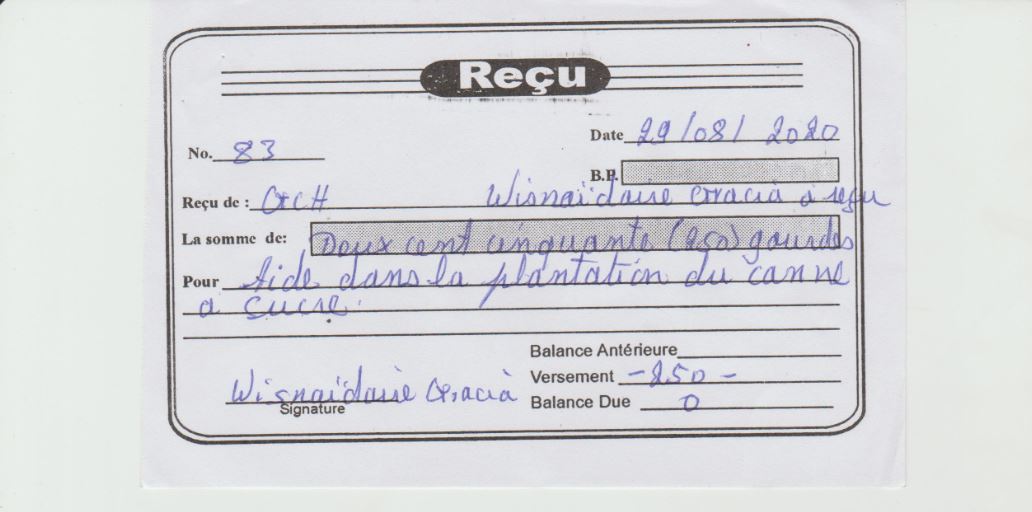 Reçu
Date 29/08/2020
No. 83
B.P.
Reçu de : GCH Wisnaïdaire Gracia a reçu
La somme de: Deux cent cinquante (250) gourdes
Pour Aide dans la plantation du canne
a sucre.
Balance Antérieure
Versement -250-
Wisnaïdaire Gracia
Signature
Balance Due 0